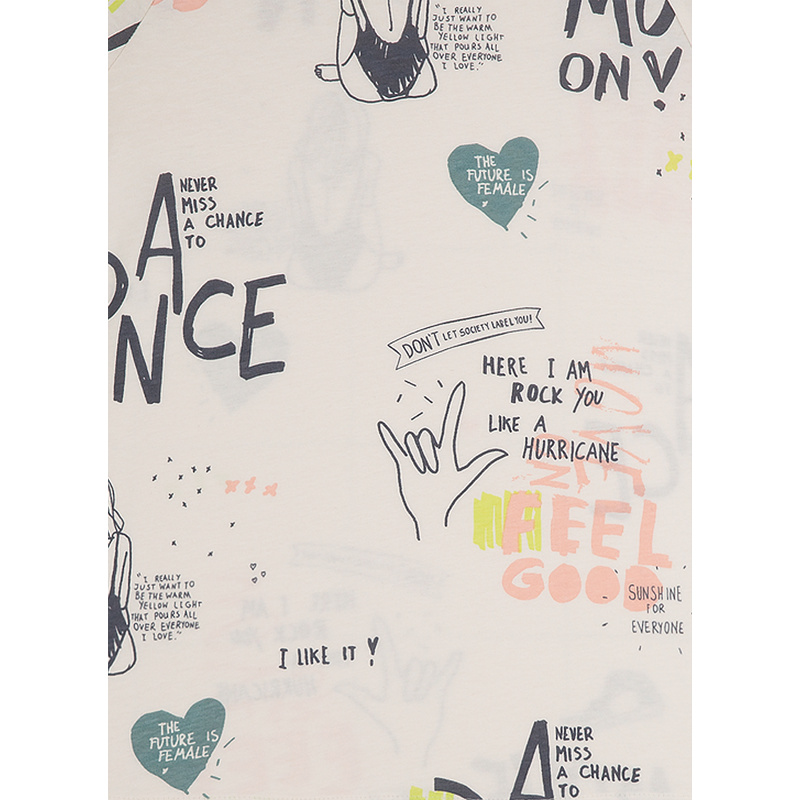 "I REALLY
JUST WANT TO
BE THE WARM
YELLOW LIGHT
THAT POURS ALL
OVER EVERYONE
I LOVE."
ON
THE
FUTURE IS
FEMALE
A
NEVER
MISS
A CHANCE
TO
NCE
DON'T LET SOCIETY LABEL YOU!
HERE I AM
ROCK YOU
LIKE A
HURRICANE
MOVE
ON
FEEL
GOOD
SUNSHINE
FOR
EVERYONE
"I REALLY
JUST WANT TO
BE THE WARM
YELLOW LIGHT
THAT POURS ALL
OVER EVERYONE
I LOVE."
I LIKE IT!
THE
FUTURE IS
FEMALE
A
NEVER
MISS
A CHANCE
TO